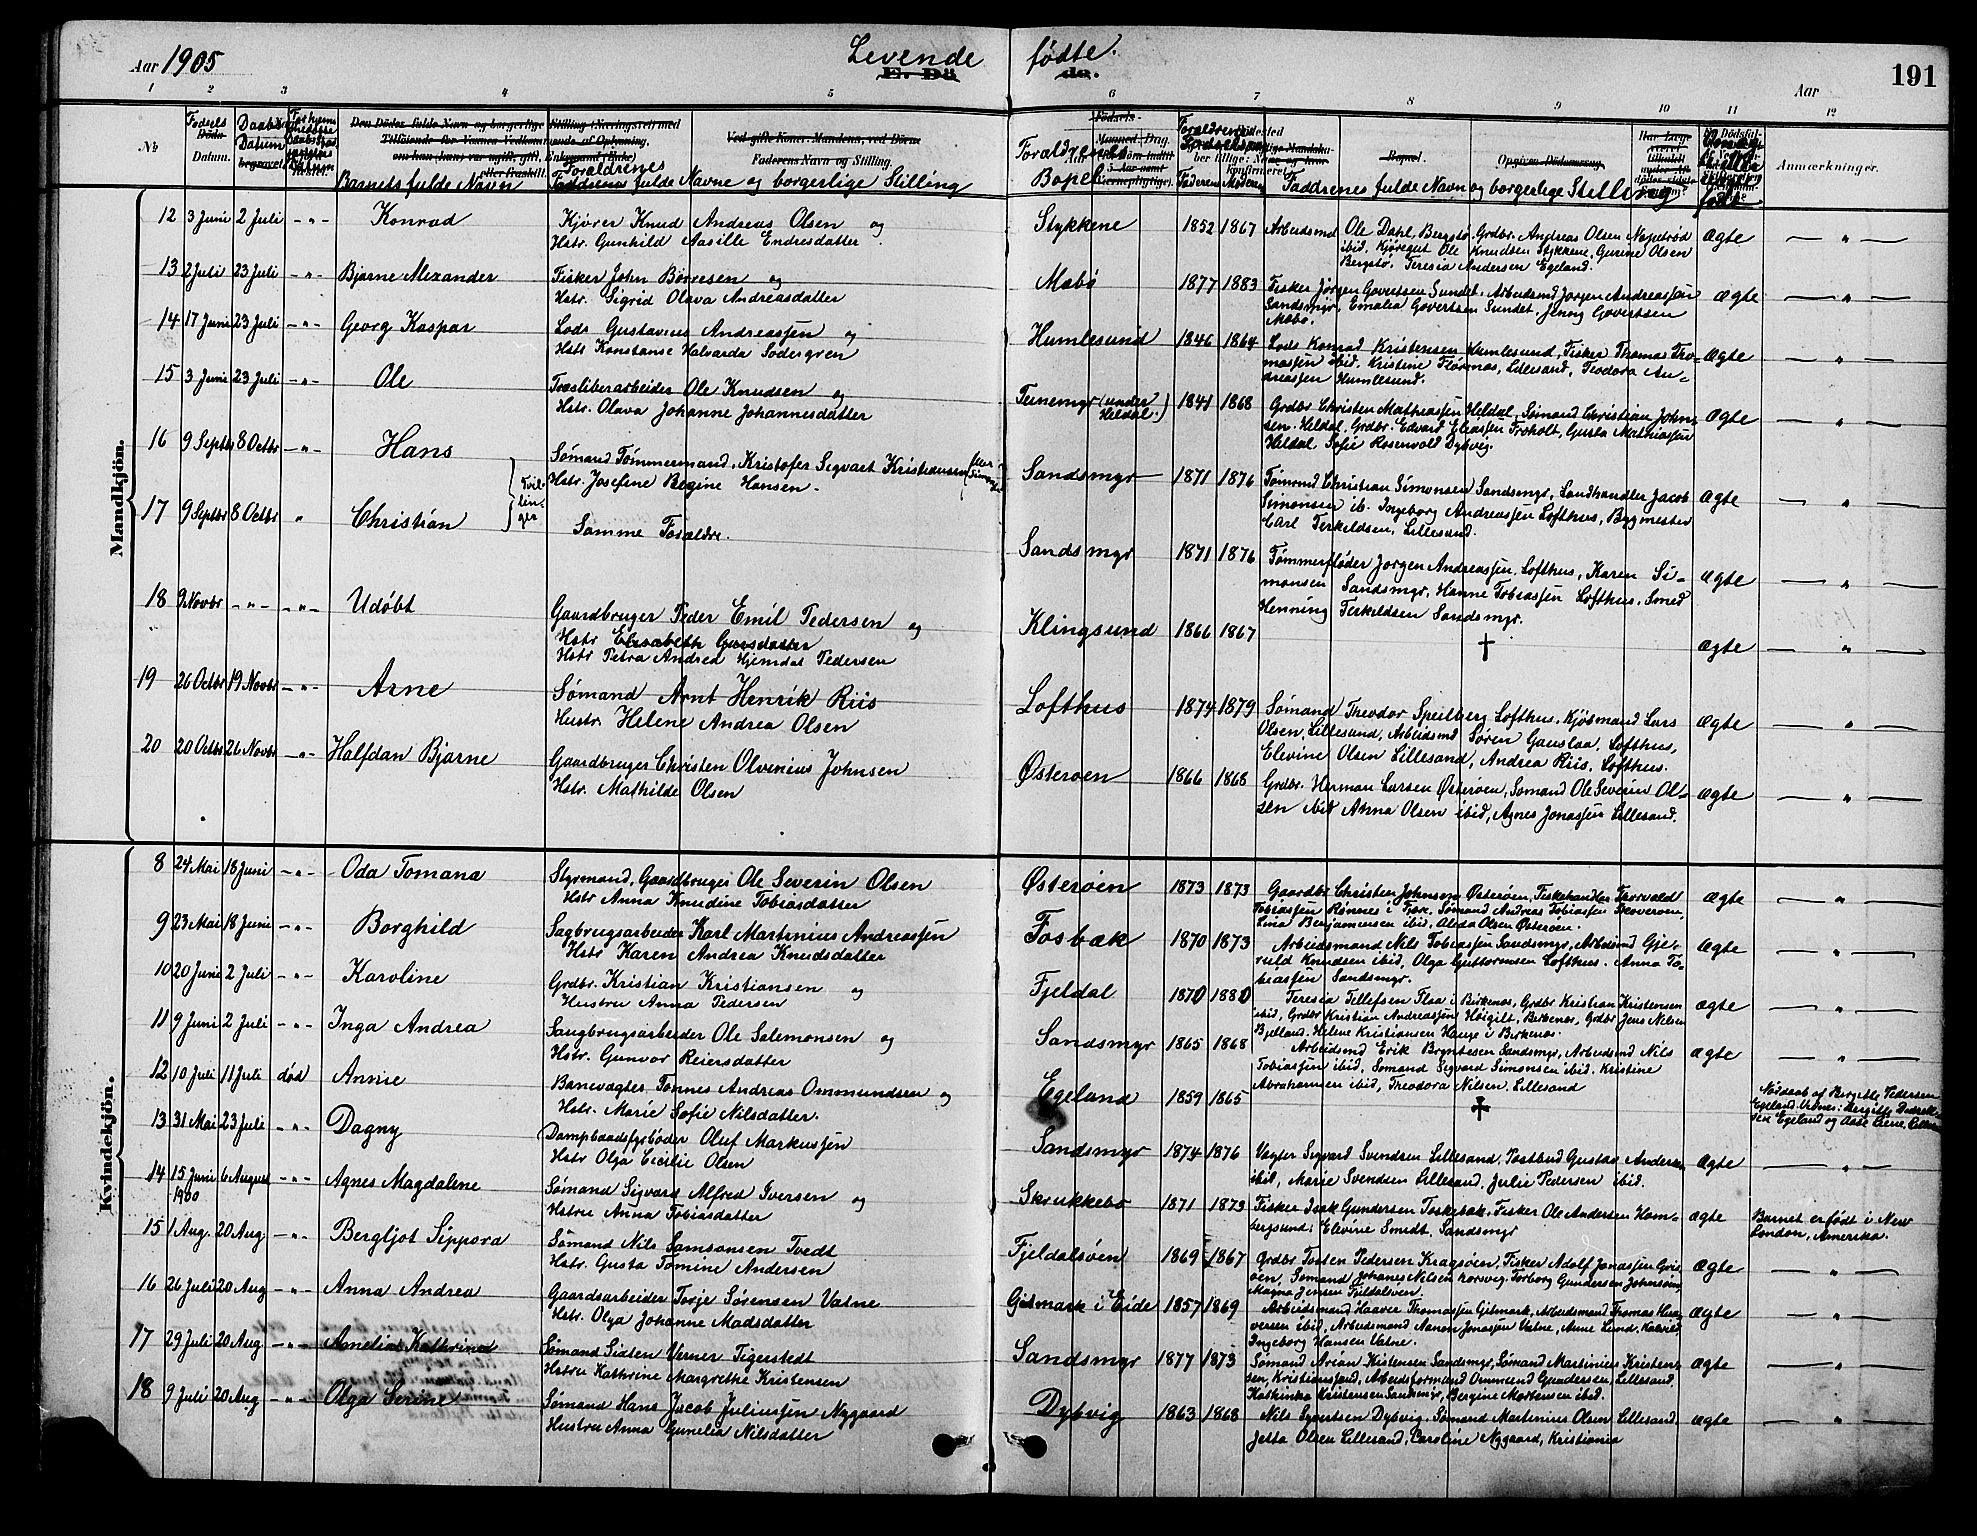 Aar 1905
Levende
fødte.
191
Aar
E. Dö
de.
1 2 3 4 5 6 7 8 9 10 11 12
№
Fødsels
Datum.
Daabs
Datum
Barnets fulde Navn
Forældrenes
fulde Navne og borgerlige Stilling
Forældrenes
Bopæl
Faderens Moderens
Faddrenes fulde Navn og borgerlige Stilling
Anmærkninger.
Mandkjön.
12 3 Juni 2 Juli -"- Konrad
Kjører Knud Andreas Olsen og
Hstr. Gunhild Aasille Endresdatter
Stykkene 1852 1867
Arbeidsmd Ole Dahl, Bergstø, Grdbr. Andreas Olsen Napetrød
ibid. Kjøregut Ole Knudsen Stykkene, Gurine Olsen
Bergstø, Teresia Andersen Egeland.
Ægte — " —
13 2 Juli 23 Juli -"- Bjarne Alexander
Fisker John Børresen og
Hstr. Sigrid Olava Andreasdatter
Mæbø 1877 1883
Fisker Jørgen Govertsen Sundet, Arbeidsmd Jørgen Andreassen
Sandsmyr, Emalia Govertsen Sundet, Jenny Govertsen
Mæbø.
Ægte — " —
14 17 Juni 23 Juli -"- Georg Kaspar
Lods Gustavius Andreassen og
Hstr Konstanse Halvarda Sødergren
Humlesund 1846 1864
Lods Konrad Kristensen Humlesund, Fisker Thomas Tho-
massen ibid. Kristine Flørenæs, Lillesand, Teodora An-
dreassen Humlesund.
Ægte — " —
15 3 Juni 23 Juli -"- Ole
Træsliberarbeider Ole Knudsen og
Hstr. Olava Johanne Johannesdatter
Tunemyr (under Heldal.) 1841 1868
Grdbr Christen Mathiassen Heldal, Sømand Christian John-
sen Heldal, Grdbr. Edvard Eliassen Troholt, Gusta Mathiassen
Heldal, Sofie Rosenvold Dybvig.
Ægte — " —
16 9 Septbr 8 Octbr -"- Hans
Sømand Tømmermand, Kristofer Sigvart Kristiansen
Hstr. Josefine Begine Hansen.
Sandsmyr 1871 1876
Tømmd Christian Simonsen Sandsmyr, Landhandler Jacob
Simonsen ib. Ingeborg Andreassen Lofthus, Bygmester
Carl Terkeldsen, Lillesand.
Ægte — " —
Tvil-
lin-
ger
17 9 Septbr 8 Octbr " Christian
Samme Forældre.
Sandsmyr 1871 1876
Tømmerfløder Jørgen Andreassen, Lofthus, Karen Si-
monsen Sandsmyr, Hanne Tobiassen Lofthus, Smed
Henning Terkeldsen Sandsmyr.
Ægte — " —
18 9 Novbr -"- -"- Udøbt
Gaardbruger Peder Emil Pedersen og
Hstr Elisabeth
Hstr Petra Andrea Hjemdal Pedersen
Klingsund 1866 1867
†
Ægte — " —
19 26 Octbr 19 Novbr -"- Arne
Sømand Arnt Henrik Riis
Hustr. Helene Andrea Olsen
Lofthus 1874 1879
Sømand Theodor Speilberg Lofthus, Kjøbmand Lars
Olsen, Lillesand, Arbeidsmd Søren Gaustaa, Lofthus,
Elevine Olsen Lillesand, Andrea Riis, Lofthus.
Ægte — " —
20 20 Octbr 26 Novbr -"- Halfdan Bjarne
Gaardbruger Christen Olvenius Johnsen
Hstr. Mathilde Olsen
Østerøen 1866 1868
Grdbr. Herman Larsen Østerøen, Sømand Ole Severin Ol-
sen ibid Anna Olsen ibid, Agnes Jonassen Lillesand.
Ægte — " —
Kvindekjön.
8 24 Mai 18 Juni -"- Oda Tomana
Styrmand, Gaardbruger Ole Severin Olsen
Hstr Anna Knudine Tobiasdatter
Østerøen 1873 1873
Gaardbr Christen Johnsen Østerøen, Fiskehandler Thorvald
Tobiassen Rønnes i Fjære, Sømand Andreas Tobiassen Skoverøen,
Lina Benjaminsen ibid, Alida Olsen Østerøen.
Ægte — " —
9 23 Mai 18 Juni -"- Borghild
Sagbrugsarbeider Karl Martinius Andreassen
Hstr Karen Andrea Knudsdatter
Fosbæk 1870 1873
Arbeidsmand Nils Tobiassen Sandsmyr, Arbeidsmd Gje-
ruld Knudsen ibid, Olga Guttormsen Lofthus. Anna To-
biassen Sandsmyr.
Ægte — " —
10 20 Juni 2 Juli -"- Karoline
Grdbr. Kristian Kristiansen og
Hustru Anna Pedersen
Fjeldal 1870 1880
Teresia Tellefsen Flaa i Birkenæs, Grdbr Kristian Kristensen
ibid, Grdbr Kristian Andreassen Høigilt, Birkenæs, Grdbr Jens Nilsen
Bjelland. Helene Kristiansen Hauge i Birkenæs.
Ægte — " —
11 9 Juni 2 Juli -"- Inga Andrea
Saugbrugsarbeider Ole Salemonsen og
Hstr. Gunvor Reiersdatter
Sandsmyr 1865 1868
Arbeidsmd Erik Bryntesen Sandsmyr, Arbeidsmd Nils
Tobiassen ibid, Sømand Sigvard Simonsen ibid. Kristine
Abrahamsen ibid, Theodora Nilsen, Lillesand
Ægte — " —
12 10 Juli 11 Juli død Annie
Banevagter Tønnes Andreas Ommundsen og
Hstr. Marie Sofie Nilsdatter.
Egeland 1859 1865
†
Nøddaab af Bergitte Pedersen
Egeland. Vidner: Bergitte
Egeland og Aase
13 31 Mai 23 Juli -"- Dagny
Dampbaadsfyrbøder Oluf Markussen
Hstr Olga Cecilie Olsen
Sandsmyr 1874 1876
Vagter Sigvard Svendsen Lillesand, Postbud Gustav Andersen
ibid, Marie Svendsen Lillesand, Julie Pedersen ibid.
Ægte — " —
14 15 Juni 1900 6 August -"- Agnes Magdalene
Sømand Sigvard Alfred Iversen og
Hstru Anna Tobiasdatter
Skrukkebo 1871 1873
Fisker Isak Gundersen Toskebæk, Fisker Ole Andersen Hom-
borgsund, Elevine Smidt, Sandsmyr
Ægte
Barnet er født i New
London, Amerika.
15 1 Aug. 20 Aug. -"- Bergljot Sippora
Sømand Nils Samsonsen Tvedt
Hstr. Gusta Tomine Andersen
Fjeldalsøen 1869 1867
Grdbr Tosten Pedersen Kragsøen, Fisker Adolf Jonassen Gris-
øen, Sømand Johanes Nilsen Torborg Gundersen
Magna Jensen Fjeldalsøen
Ægte — " —
16 26 Juli 20 Aug -"- Anna Andrea
Gaardsarbeider Torje Sørensen Vatne
Hstr. Olga Johanne Madsdatter
Gitmark i Eide 1857 1869
Arbeidsmand Haaver Thomassen Gitmark, Arbeidsmand Thomas Haa-
versen ibid, Arbeidsmand Aanon Jonassen Vatne, Anne Lund,
Ingeborg Hansen Vatne.
Ægte — " —
17 29 Juli 20 Aug -"- Amelia Kathrine
Sømand Sixten Verner Tigerstedt
Hstru Kathrine Margrethe Kristensen
Sandsmyr 1877 1873
Sømand Arian Kristensen Sandsmyr, Sømand Martinius Kristen-
sen, Kristianssand, Arbeidsformand Ommund Gundersen, Lillesand.
Kathinka Kristensen Sandsmyr, Bergine Mortensen ibid.
Ægte — " —
18 9 Juli 20 Aug -"- Olga Serine
Sømand Hans Jacob Juliussen Nygaard
Hustru Anna Gunelia Nilsdatter
Dybvig 1863 1868
Nils Syvertsen Dybvig, Sømand Martinius Olsen Lillesand,
Jetta Olsen Lillesand, Caroline Nygaard, Kristiania
Ægte — " —